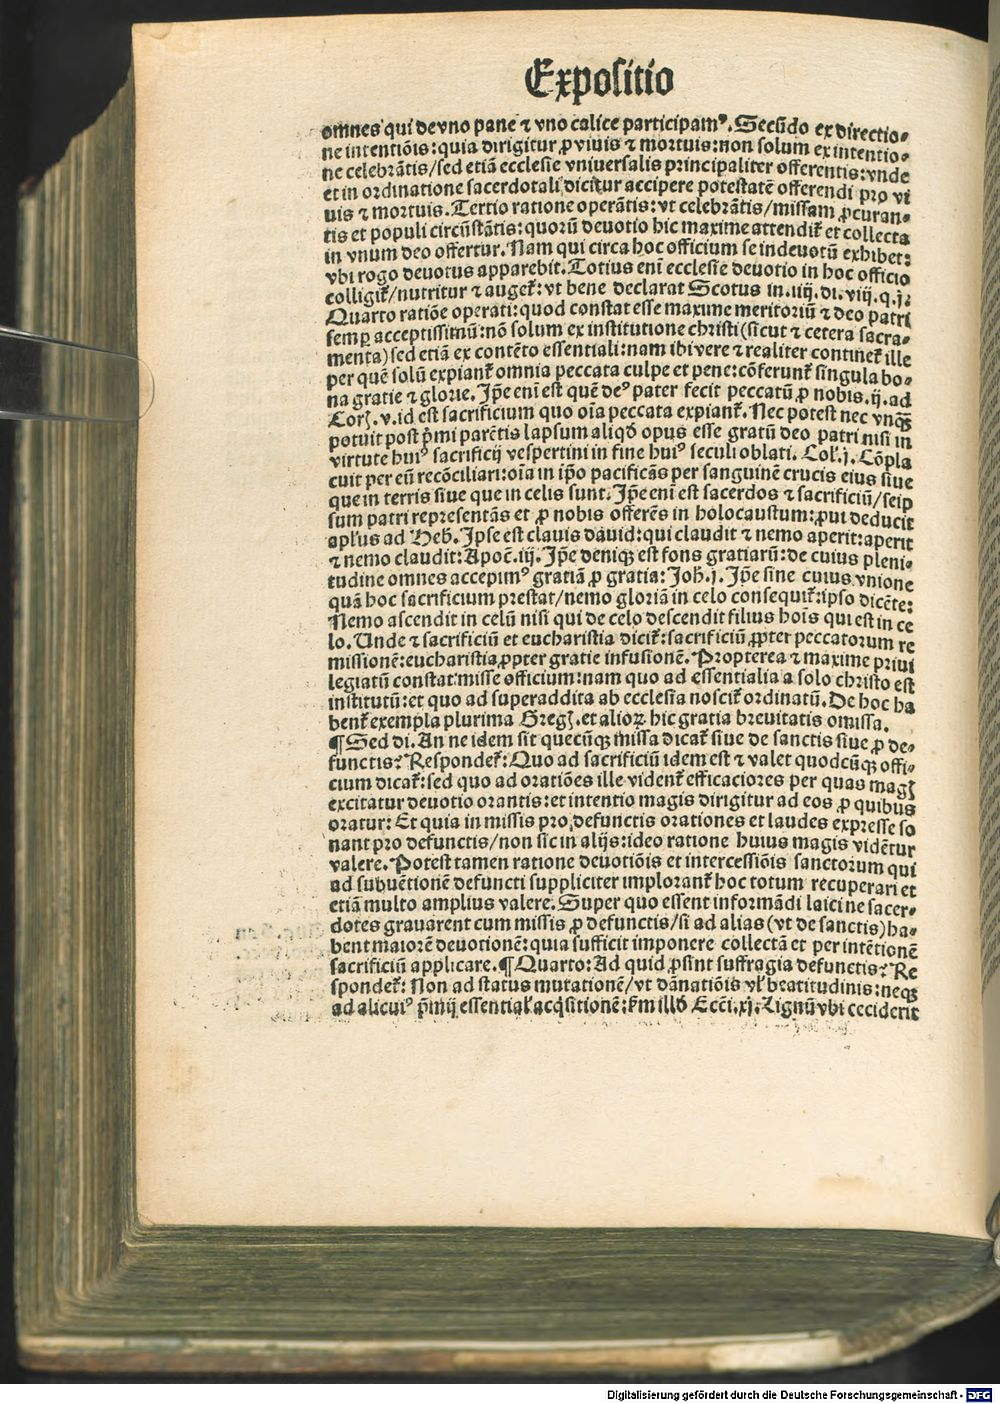 Expositio
omnes qui de vno pane ⁊ vno calice participamꝰ. Secūdo ex directio-
ne intentiōis: quia dirigitur ꝓ viuis ⁊ mortuis: non solum ex intentio-
ne celebrātis/sed etiā ecclesie vniuersalis principaliter offerentis: vnde
et in ordinatione sacerdotali dicitur accipere potestatē offerendi pro vi
uis ⁊ mortuis. Tertio ratione operātis: vt celebrātis/missam ꝓcuran-
tis et populi circūstātis: quorū deuotio hic maxime attendit᷑ et collecta
in vnum deo offertur. Nam qui circa hoc officium se indeuotū exhibet:
vbi rogo deuotus apparebit. Totius eni ecclesie deuotio in hoc officio
colligit᷑/nutritur ⁊ auget᷑: vt bene declarat Scotus in .iiij. di. viij. q. j.
Quarto ratiōe operati: quod constat esse maxime meritoriū ⁊ deo patri
semꝑ acceptissimū: nō solum ex institutione christi (sicut ⁊ cetera sacra-
menta) sed etiā ex contēto essentiali: nam ibi vere ⁊ realiter continet᷑ ille
per quē solū expiant᷑ omnia peccata culpe et pene: cōferunt᷑ singula bo-
na gratie ⁊ glorie. Ip̄e eni est quē deꝰ pater fecit peccatū ꝓ nobis. ij. ad
Corꝭ. v. id est sacrificium quo oīa peccata expiant᷑. Nec potest nec vnꝗ̄
potuit post p̄mi parētis lapsum aliqḋ opus esse gratū deo patri nisi in
virtute huiꝰ sacrificij vespertini in fine huiꝰ seculi oblati. Col. j. Cōpla
cuit per eū recōciliari: oīa in ip̄o pacificās per sanguinē crucis eius siue
que in terris siue que in celis sunt. Ip̄e eni est sacerdos ⁊ sacrificiū/seip
sum patri representās et ꝓ nobis offerēs in holocaustum: ꝓui deducit
apl̓us ad Heb̄. Ipse est clauis dauid: qui claudit ⁊ nemo aperit: aperit
⁊ nemo claudit: Apoc̄. iij. Ip̄e deniqꝫ est fons gratiarū: de cuius pleni-
tudine omnes accepimꝰ gratiā ꝓ gratia: Joh̄. j. Ip̄e sine cuius vnione
quā hoc sacrificium prestat/nemo gloriā in celo consequit᷑: ipso dicēte:
Nemo ascendit in celū nisi qui de celo descendit filius hoīs qui est in ce
lo. Unde ⁊ sacrificiū et eucharistia dicit᷑: sacrificiū ꝓpter peccatorum re
missionē: eucharistia ꝓpter gratie infusionē. Propterea ⁊ maxime priui
legiatū constat misse officium: nam quo ad essentialia a solo christo est
institutū: et quo ad superaddita ab ecclesia noscit᷑ ordinatū. De hoc ha
bent᷑ exempla plurima Gregꝭ. et alioꝝ hic gratia breuitatis omissa.
¶ Sed di. An ne idem sit quecūqꝫ missa dicat᷑ siue de sanctis siue ꝓ de-
functis? Respondet᷑: Quo ad sacrificiū idem est ⁊ valet quodcūqꝫ offi-
cium dicat᷑: sed quo ad oratiōes ille vident᷑ efficaciores per quas magꝭ
excitatur deuotio orantis: et intentio magis dirigitur ad eos ꝓ quibus
oratur: Et quia in missis pro defunctis orationes et laudes expresse so
nant pro defunctis/non sic in alijs: ideo ratione huius magis vidētur
valere. Potest tamen ratione deuotiōis et intercessiōis sanctorum qui
ad subuētionē defuncti suppliciter implorant᷑ hoc totum recuperari et
etiā multo amplius valere. Super quo essent informādi laici ne sacer-
dotes grauarent cum missis ꝓ defunctis/si ad alias (vt de sanctis) ha-
bent maiorē deuotionē: quia sufficit imponere collectā et per intētionē
sacrificiū applicare. ¶ Quarto: Ad quid ꝓsint suffragia defunctis? Re
spondet᷑: Non ad status mutationē/vt dānatiōis vl̓ beatitudinis: neqꝫ
ad alicuiꝰ p̄mij essential̓ acq̓sitionē: s̄m illḋ Ecci. xj. Lignū vbi ceciderit
Digitalisierung gefördert durch die Deutsche Forschungsgemeinschaft - DFG